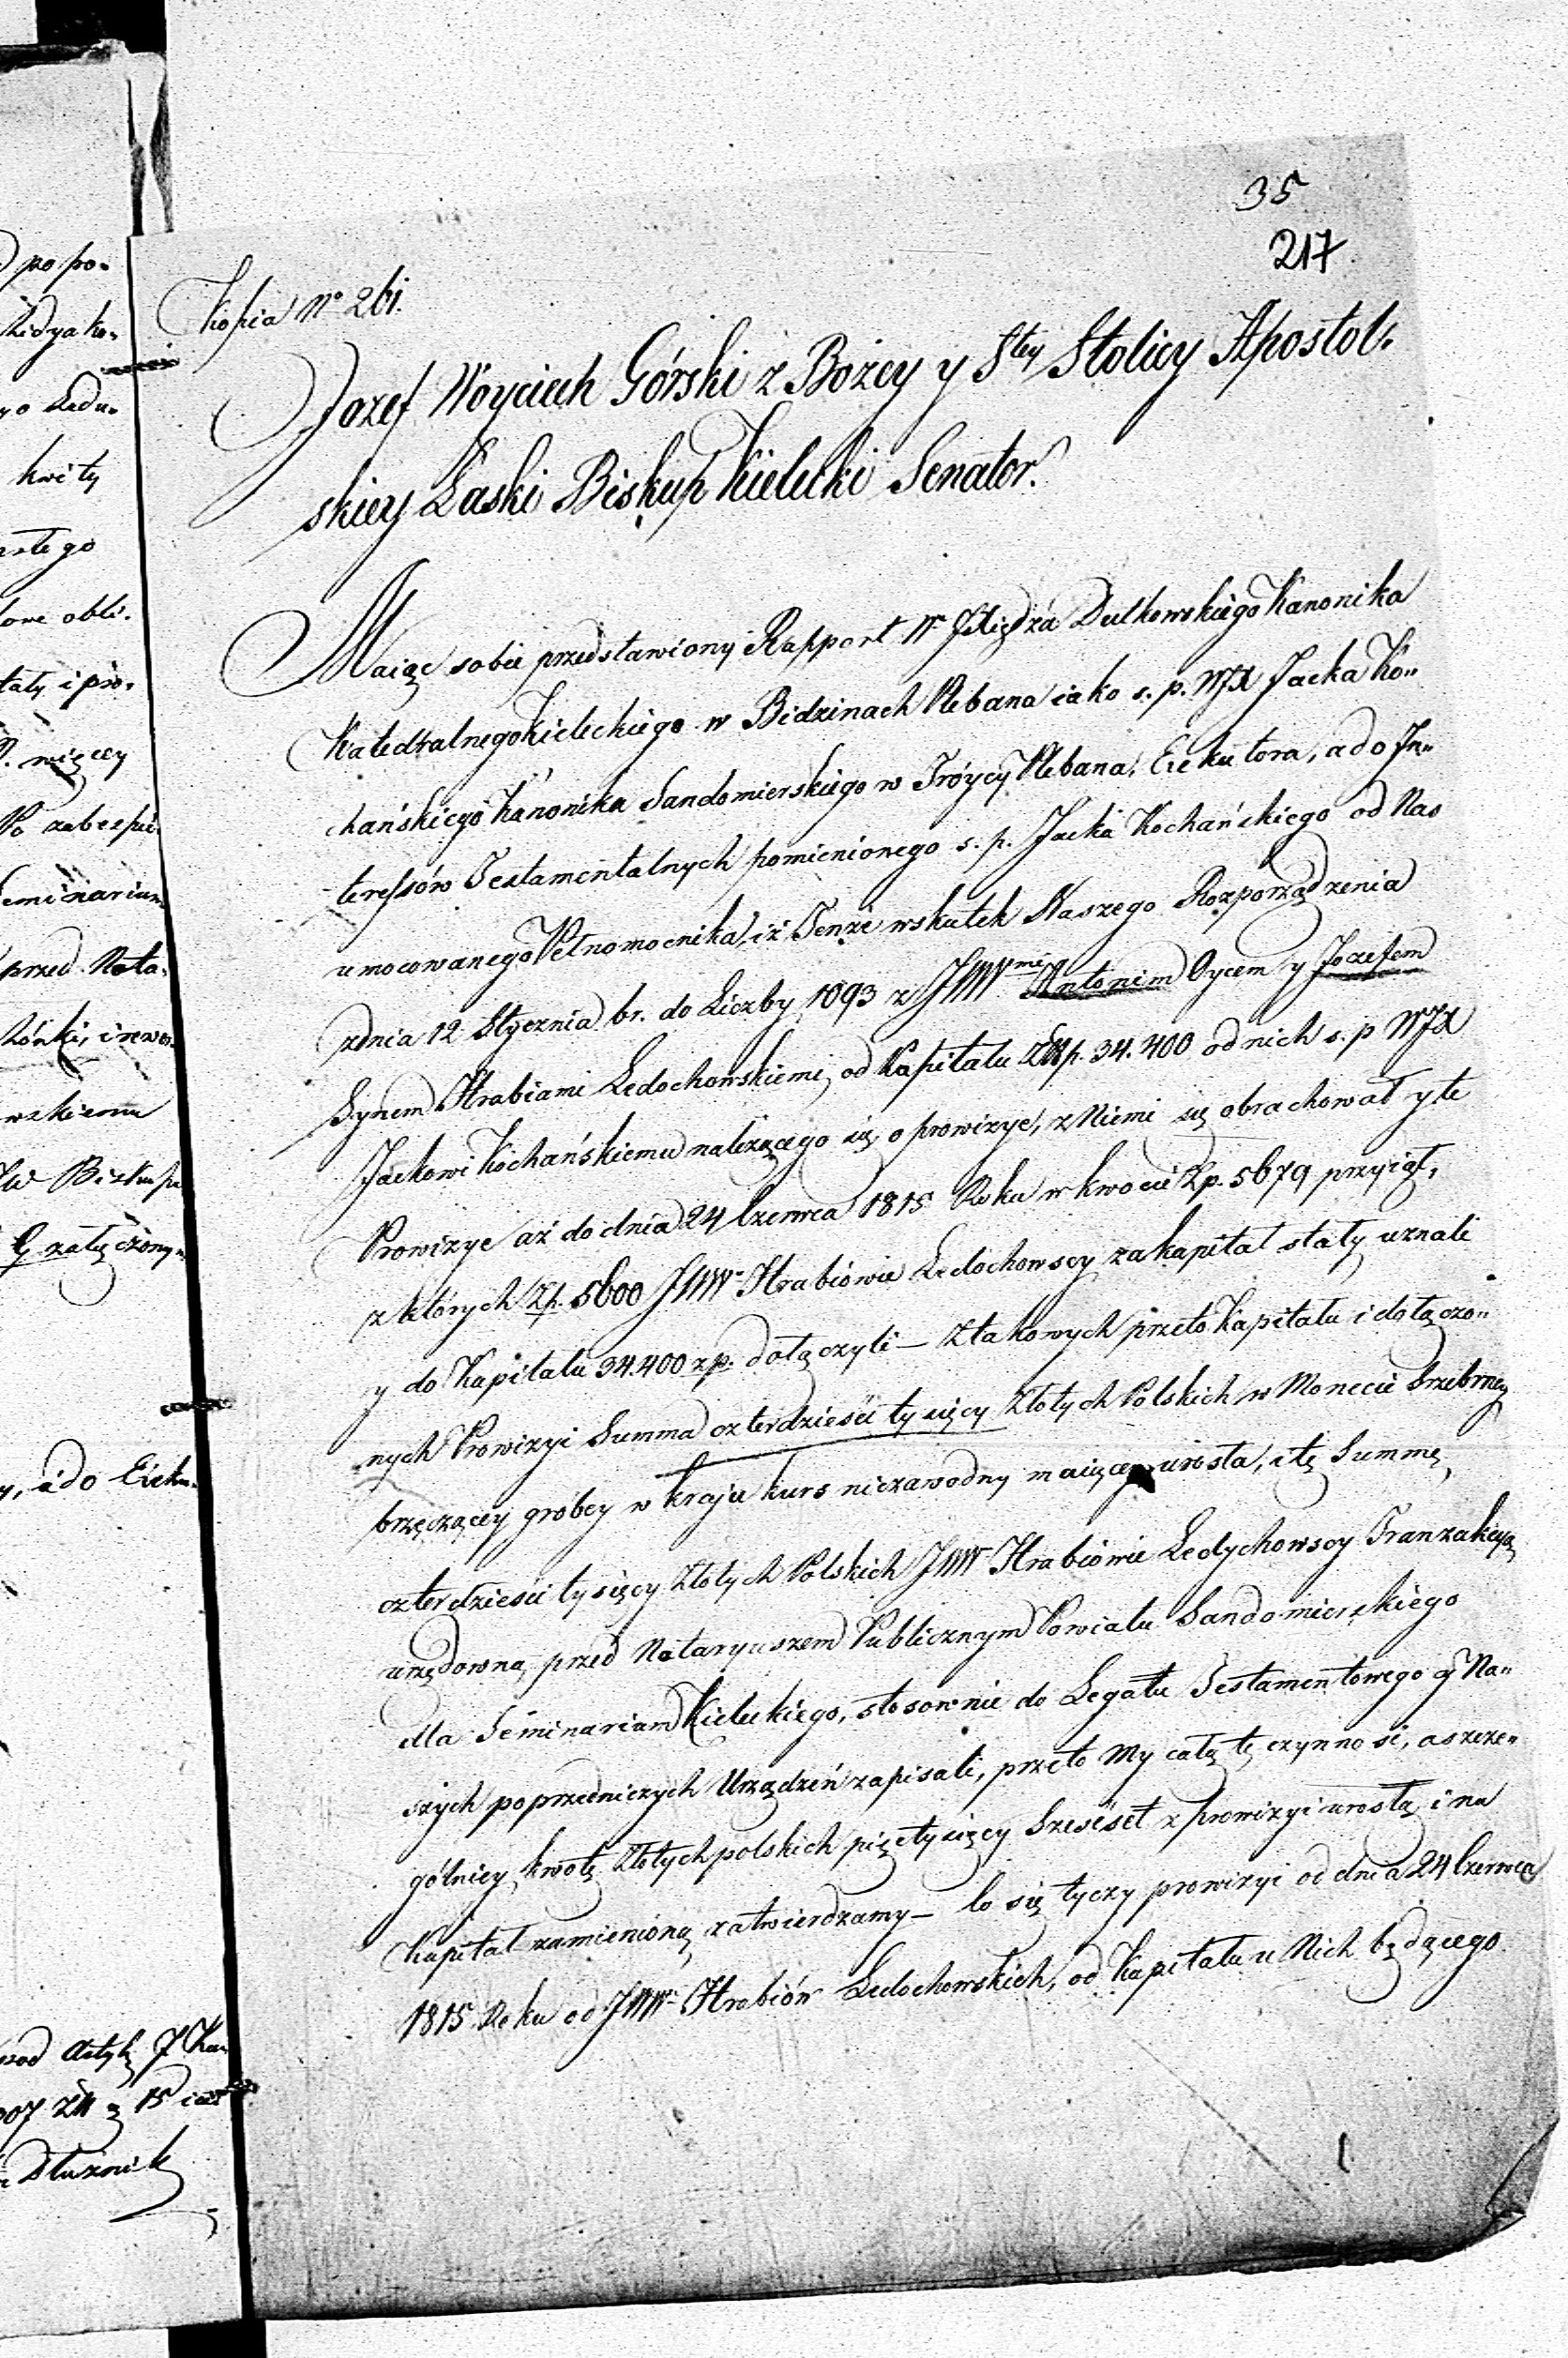 35
217
Kopia No 261.
Jozef Woyciech Górski z Bożey y Stey Stolicy Apostol-
skiey Łaski Biskup Kielecki Senator.
Maiąc sobie przedstawiony Rapport W. Xiędza Dutkowskiego Kanonika
Katedralnego Kieleckiego w Bidzinach Plebana iako s. p. WJX Jacka Ko-
chańskiego Kanonika Sandomierskiego w Tróycy Plebana, Exekutora, a do In-
teressów Testamentalnych pomienionego s. p. Jacka Kochańskiego od Nas
umocowanego Pełnomocnika, iż Tenże wskutek Naszego Rozporządzenia
z dnia 12 Stycznia br. do Liczby 1093 z JWWmi Antonim Oycem y Jozefem
Synem Hrabiami Ledochowskiemi, od Kapitału Złłp. 34.400 od nich s. p WJX
Jackowi Kochańskiemu należącego się, o prowizye, z Niemi się obrachował y te
Prowizye aż do dnia 24 Czerwca 1815 Roku w kwocie Zp. 5679 przyiął,
z których Zp. 5600 JWW. Hrabiowie Ledochowscy za kapitał stały uznali
y do Kapitału 34.400 zp. dołączyli – Z takowych przeto Kapitału i dołączo-
nych Prowizyi Summa czterdzieści tysięcy Złotych Polskich w Monecie Srzebrney
brzęczącey grubey w kraju kurs niezawodny maiącey urosła, i tę Summę
czterdzieści tysięcy Złotych Polskich JWW Hrabiowie Ledychowscy Tranzakcyą
urzędowną, przed Notaryuszem Publicznym Powiatu Sandomierskiego
dla Seminarium Kieleckiego, stosownie do Legatu Testamentowego y Na-
szych poprzedniczych Urządzeń zapisali, przeto My całą tę czynność, a szcze-
gólniey kwotę Złotych polskich pięć tysięcy Sześćset z prowizyi urosłą i na
Kapitał zamienioną zatwierdzamy – Co się tyczy prowizyi od dnia 24 Czerwca
1815 Roku od JWW. Hrabiów Ledochowskich, od Kapitału u Nich będącego
po po-
kwity
obli-
więcey
przed Nota-
Biskupa
załączony
Dłużnik